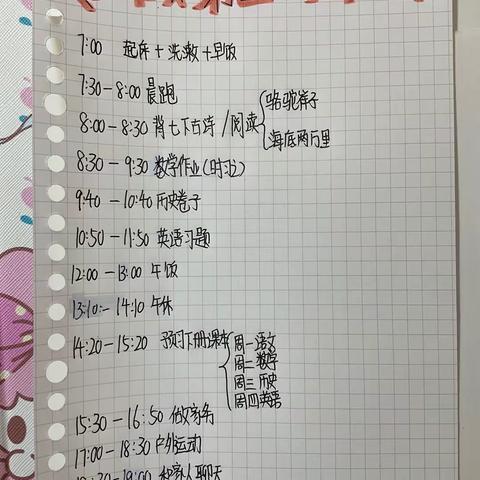 7:00 起床+洗漱+早饭
7:30-8:00 晨跑
8:00-8:30 背七下古诗/阅读{骆驼祥子
海底两万里
8:30-9:30 数学作业(时习)
9:40-10:40 历史卷子
10:50-11:50 英语习题
12:00-13:00 午饭
13:10-14:10 午休
14:20-15:20 预习下册课本{周一语文
周二数学
周三历史
周四英语
15:30-16:50 做家务
17:00-18:30 户外运动
和家人聊天